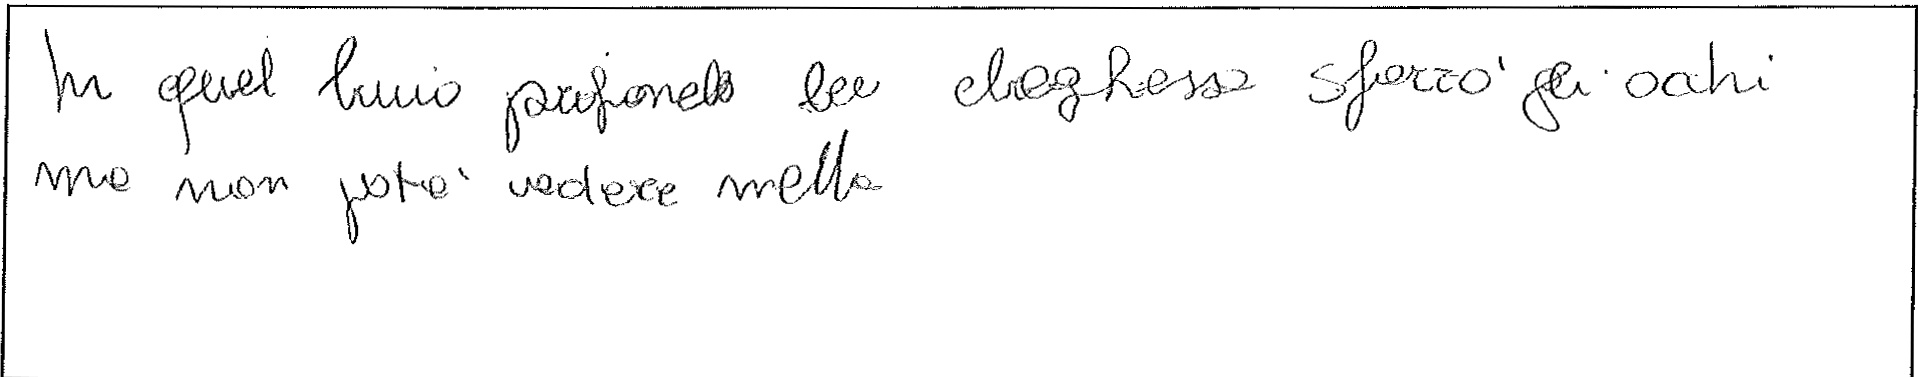 In quel buio profondo la draghessa sferzò gli occhi
ma non poté vedere nella